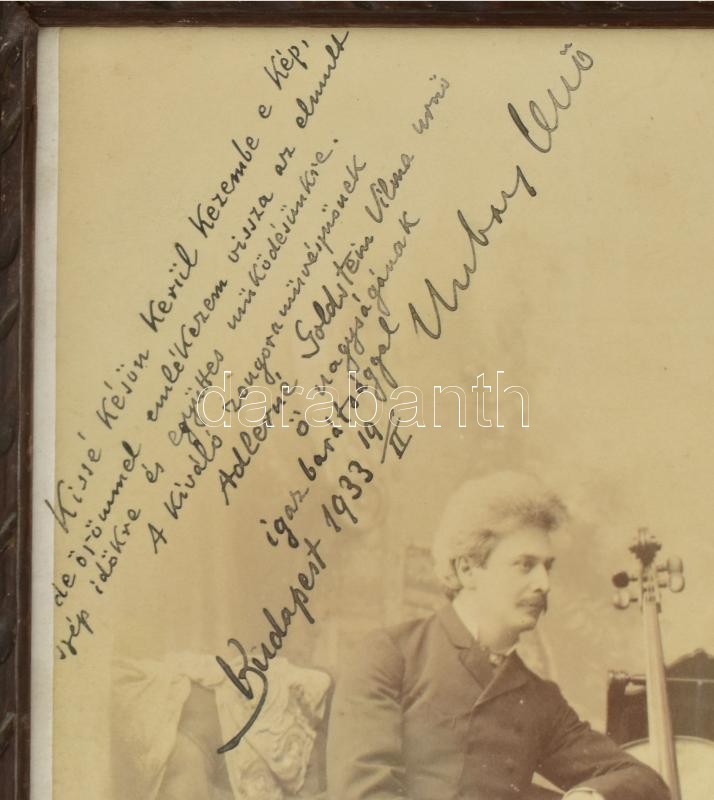 Kissé késön kerül kezembe e kép,
de örömmel emlékezem vissza az elmult
szép idökre és együttes müködésünkre.
A kiváló zongoramüvésznönek
Adlerné Goldstein Vilma urnö
ö nagyságának
igaz barátsággal
Budapest 1933 19/II
Hubay Jenö
darabanth